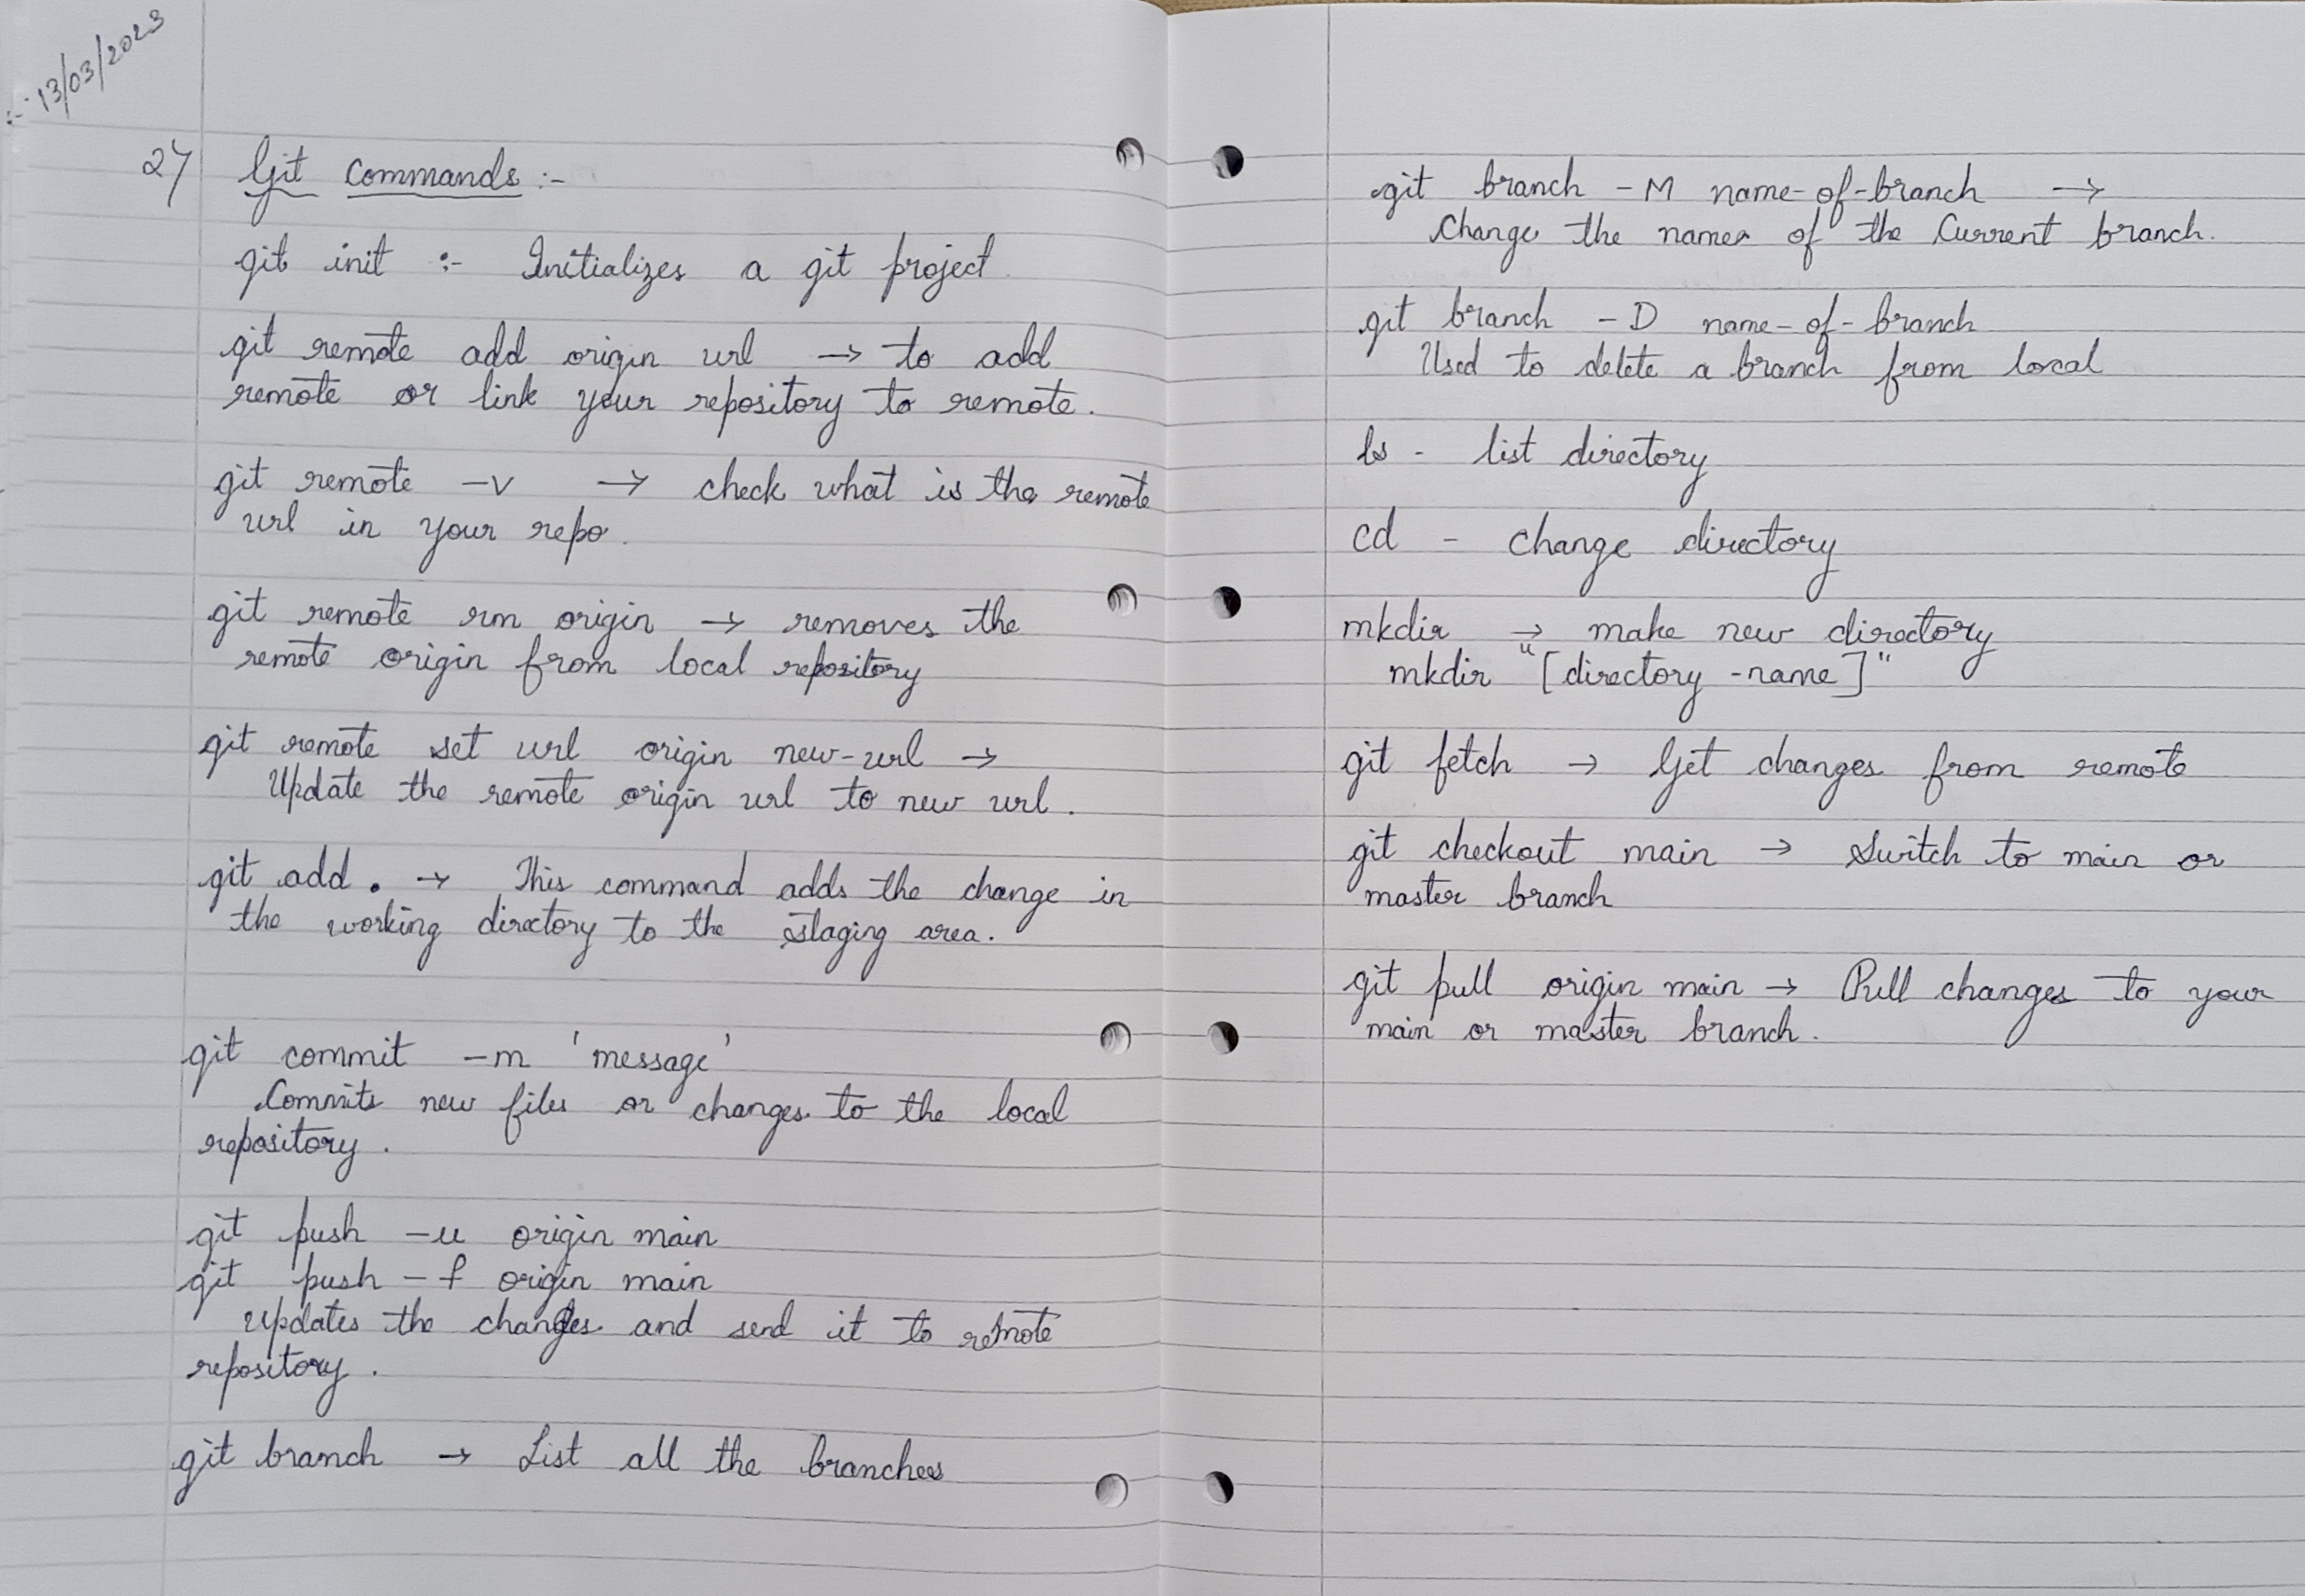 :- 13/03/2023
27 Git Commands :-
git init :- Initializes a git project.
git remote add origin url → to add
remote or link your repository to remote.
git remote -v → check what is the remote
url in your repo.
git remote rm origin → removes the
remote origin from local repository
git remote set url origin new-url →
Update the remote origin url to new url.
git add . → This command adds the change in
the working directory to the staging area.
git commit -m 'message'
Commits new files or changes to the local
repository.
git push -u origin main
git push -f origin main
Updates the changes and send it to remote
repository.
git branch → List all the branches
git branch -M name-of-branch →
Change the names of the Current branch.
git branch -D name-of-branch
Used to delete a branch from local
ls - list directory
cd - change directory
mkdir → make new directory
mkdir "[directory-name]"
git fetch → Get changes from remote
git checkout main → Switch to main or
master branch
git pull origin main → Pull changes to your
main or master branch.